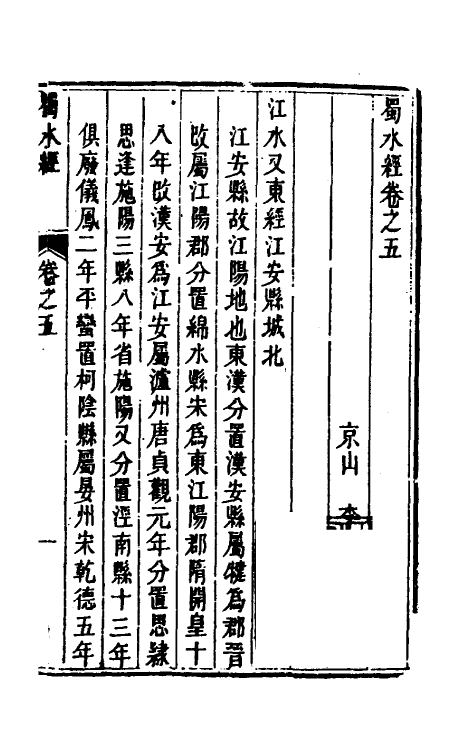 蜀水經卷之五
京山 李
江水又東經江安縣城北
江安縣故江陽地也東漢分置漢安縣屬犍為郡晋
改屬江陽郡分置綿水縣宋爲東江陽郡隋開皇十
八年改漢安爲江安屬瀘州唐貞觀元年分置思隸
思逢施陽三縣八年省施陽又分置涇南縣十三年
俱廢儀鳳二年平蠻置柯陰縣屬晏州宋乾德五年
蜀水經 卷之五 一